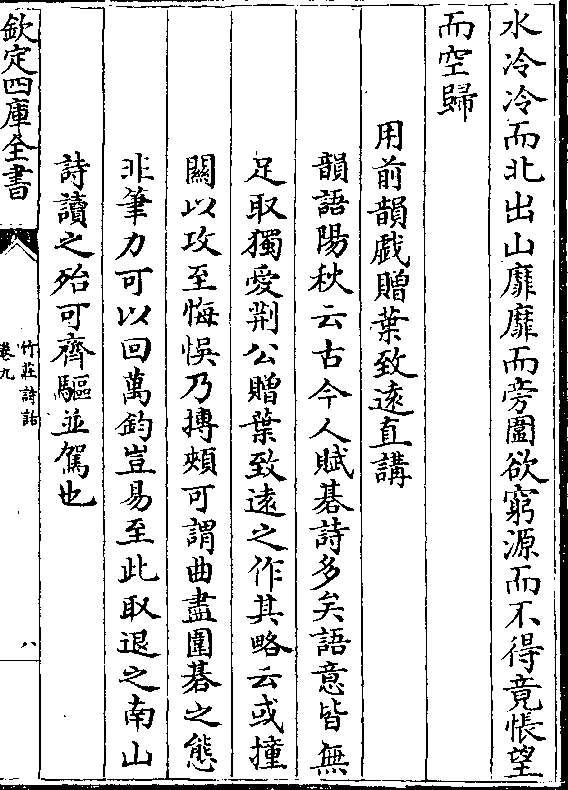 水冷冷而北出山靡靡而旁圍欲窮源而不得竟悵望
而空歸
用前韻戲贈葉致遠直講
韻語陽秋云古今人賦碁詩多矣語意皆無
足取獨愛荆公贈葉致遠之作其略云或撞
關以攻至悔悮乃摶頰可謂曲盡圍碁之態
非筆力可以回萬鈞豈易至此取退之南山
詩讀之殆可齊驅並駕也
欽定四庫全書
竹莊詩話
卷九
八